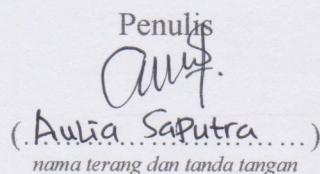 Penulis
(Aulia Saputra)
nama terang dan tanda tangan